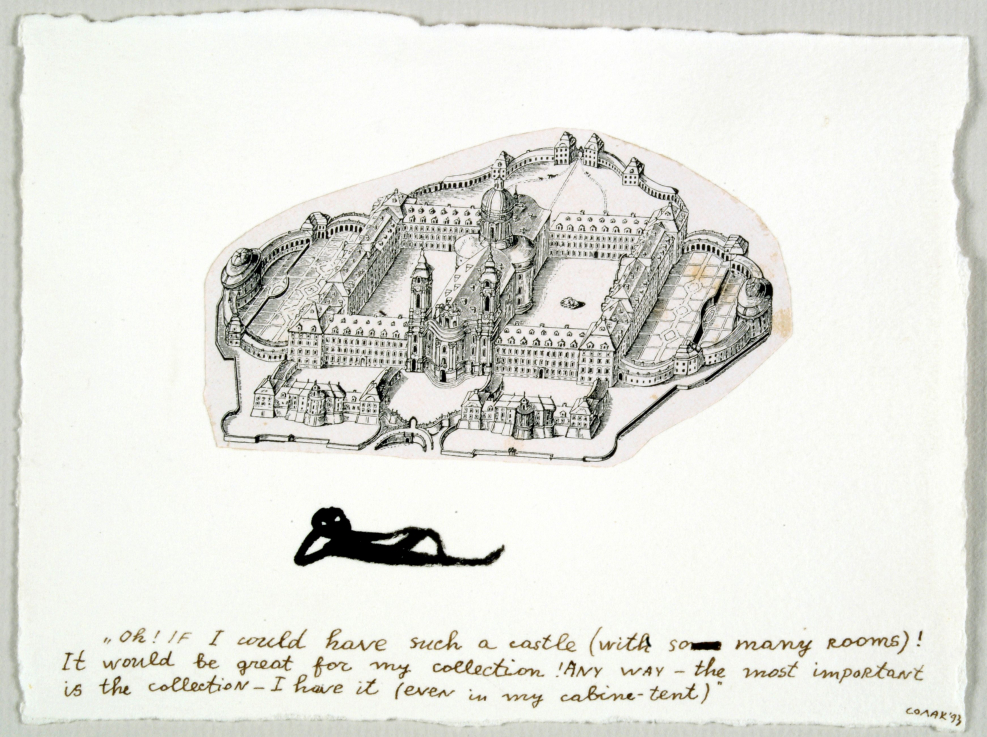 „Oh! IF I could have such a castle (with so many ROOMS)!
It would be great for my collection! ANY WAY – the most important
is the collection – I have it (even in my cabine-tent)"
СОЛАК'93